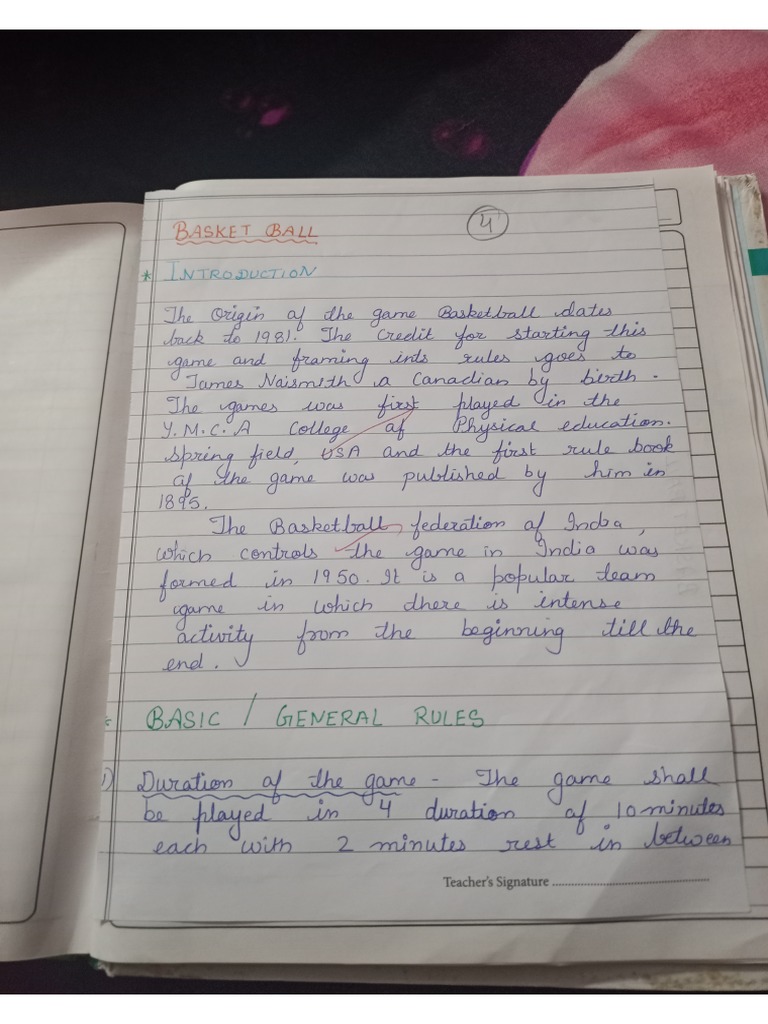 BASKET BALL
4
* INTRODUCTION
The Origin of the game Basketball dates
back to 1981. The Credit for starting this
game and framing ints rules goes to
James Naismith a Canadian by birth.
The games was first played in the
Y.M.C.A College of Physical education.
Spring field, USA and the first rule book
of the game was published by him in
1895.
The Basketball federation of India,
which controls the game in India was
formed in 1950. It is a popular team
game in which dhere is intense
activity from the beginning till the
end.
* BASIC / GENERAL RULES
1) Duration of the game - The game shall
be played in 4 duration of 10 minutes
each with 2 minutes rest in between
Teacher's Signature